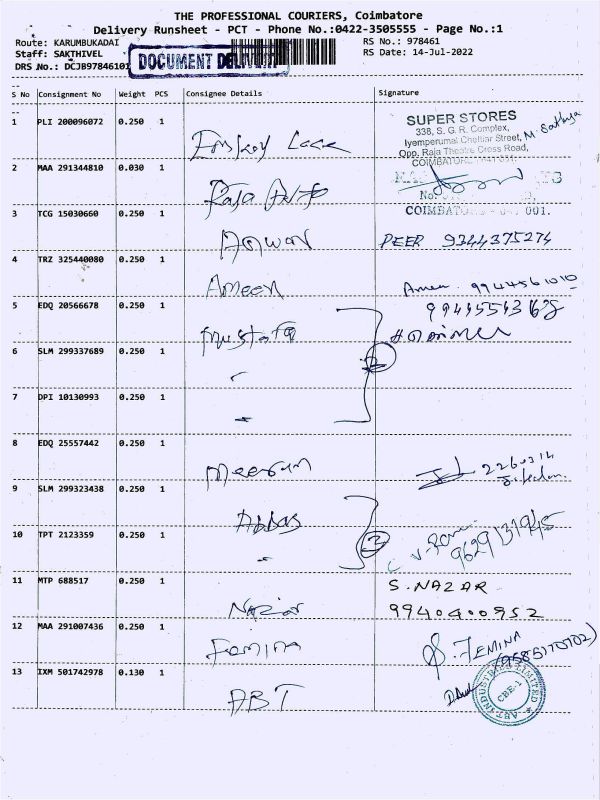 THE PROFESSIONAL COURIERS, Coimbatore
Delivery Runsheet - PCT - Phone No.:0422-3505555 - Page No.:1
Route: KARUMBUKADAI RS No.: 978461
Staff: SAKTHIVEL RS Date: 14-Jul-2022
DRS No.: DCJB97846101 DOCUMENT DELIVERY
S No Consignment No Weight PCS Consignee Details Signature
1 PLI 200096072 0.250 1
SUPER STORES
338, S. G. R. Complex,
Iyemperumal Chettiar Street,
Opp. Raja Theatre Cross Road,
COIMBATORE
2 MAA 291344810 0.030 1 Raja
COIMBATORE 001.
3 TCG 15030660 0.250 1 Anwar PEER 9344375274
4 TRZ 325440080 0.250 1 Ameen Ameen 9944561010
5 EDQ 20566678 0.250 1 Mustafa
6 SLM 299337689 0.250 1
7 DPI 10130993 0.250 1
8 EDQ 25557442 0.250 1 Meeran 2260314
9 SLM 299323438 0.250 1 Abbas
10 TPT 2123359 0.250 1 9629131945
11 MTP 688517 0.250 1 Nazar S. NAZAR
9940400952
12 MAA 291007436 0.250 1 Femina S. FEMINA
(9585170702)
13 IXM 501742978 0.130 1 ABT
ABT INDUSTRIES LIMITED
CBE-1